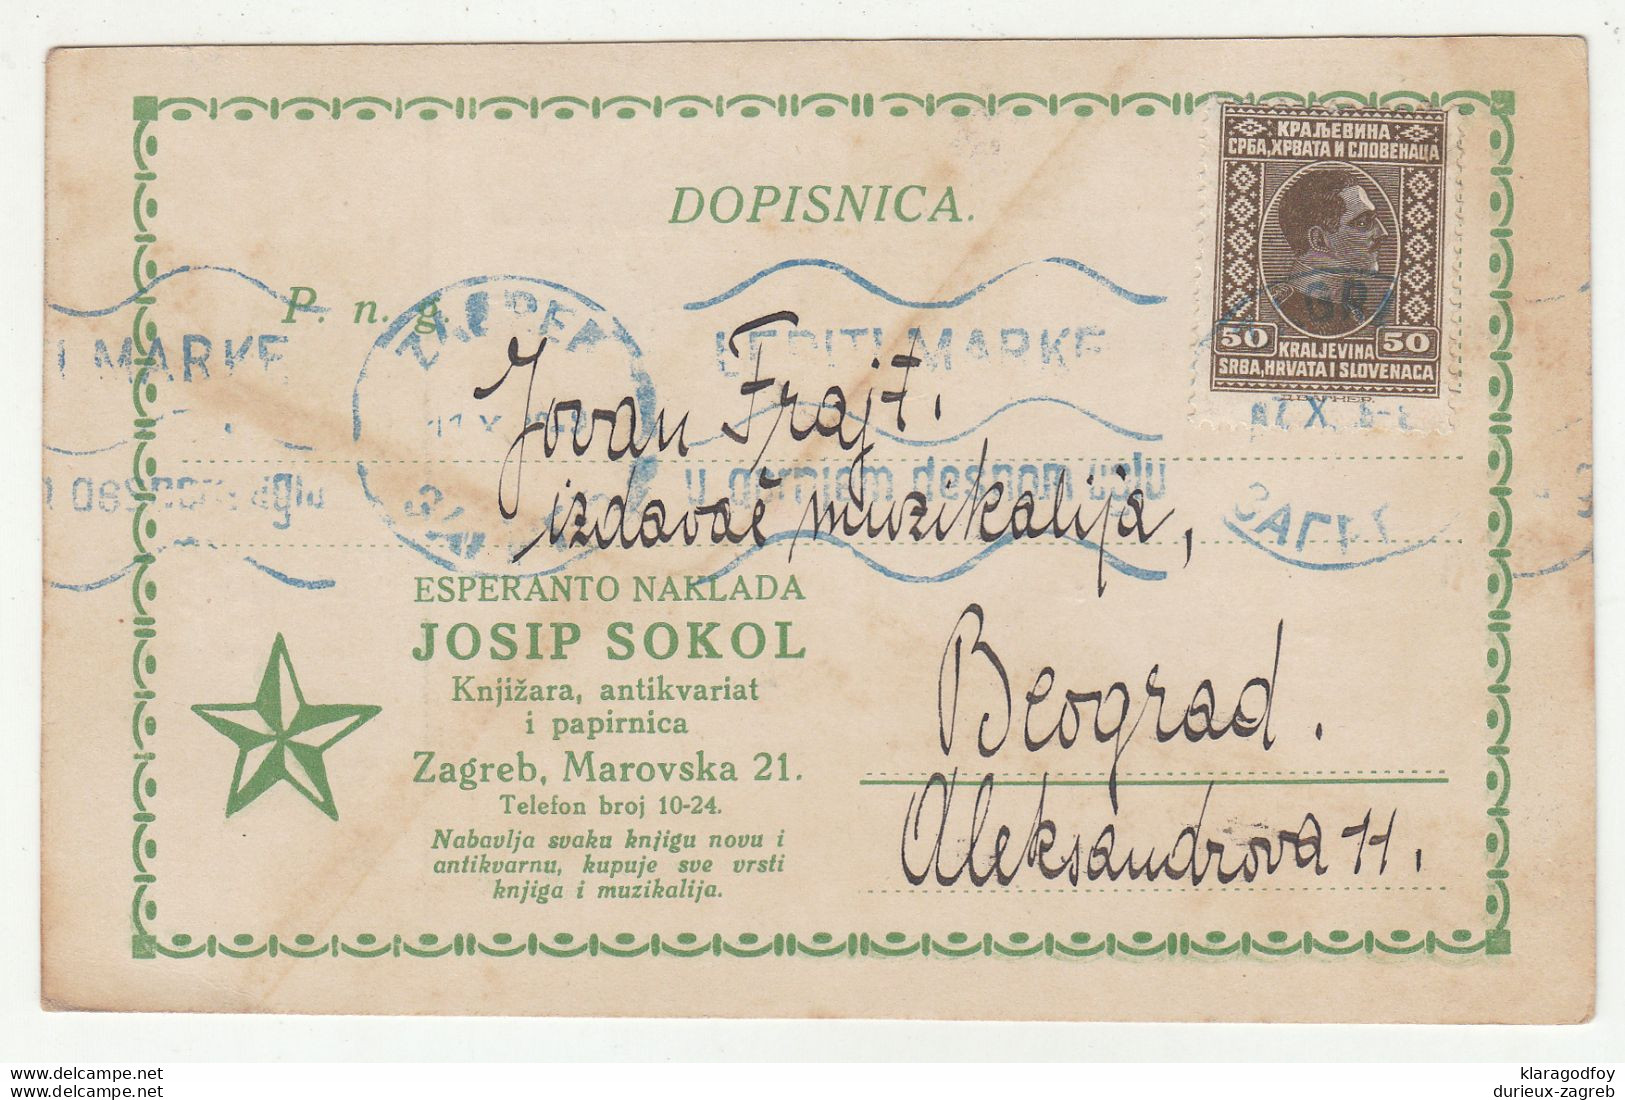 DOPISNICA.
КРАЉЕВИНА
СРБА, ХРВАТА И СЛОВЕНАЦА
50 KRALJEVINA 50
SRBA, HRVATA I SLOVENACA
P. n. g.
ZAGREB
LEPITI MARKE
u gornjem desnom uglu
Jovan Frajt.
izdavač muzikalija,
Beograd.
Aleksandrova 11.
ESPERANTO NAKLADA
JOSIP SOKOL
Knjižara, antikvariat
i papirnica
Zagreb, Marovska 21.
Telefon broj 10-24.
Nabavlja svaku knjigu novu i
antikvarnu, kupuje sve vrsti
knjiga i muzikalija.
klaragodfoy
durieux-zagreb